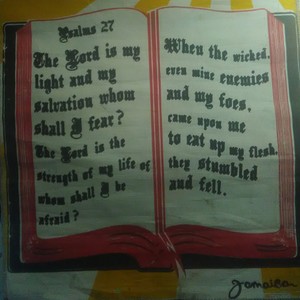 Psalms 27
The Lord is my
light and my
salvation whom
shall I fear?
The Lord is the
strength of my life of
whom shall I be
afraid?
When the wicked,
even mine enemies
and my foes,
came upon me
to eat up my flesh,
they stumbled
and fell.